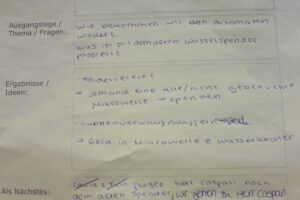 Ausgangslage /
Thema / Fragen:
Wie bekommen wir den Automaten
wieder?
Was ist mit dem alten Wasserspender
passiert?
Ergebnisse /
Ideen:
→ jemand eine alte/nicht gebrauchte
Mikrowelle → spenden
→ Geld
→ Geld in Mikrowelle & Wasserkocher
Als Nächstes:
fragen Herr Caspari nach
dem alten Spender, wir gehen zu Herr Caspari